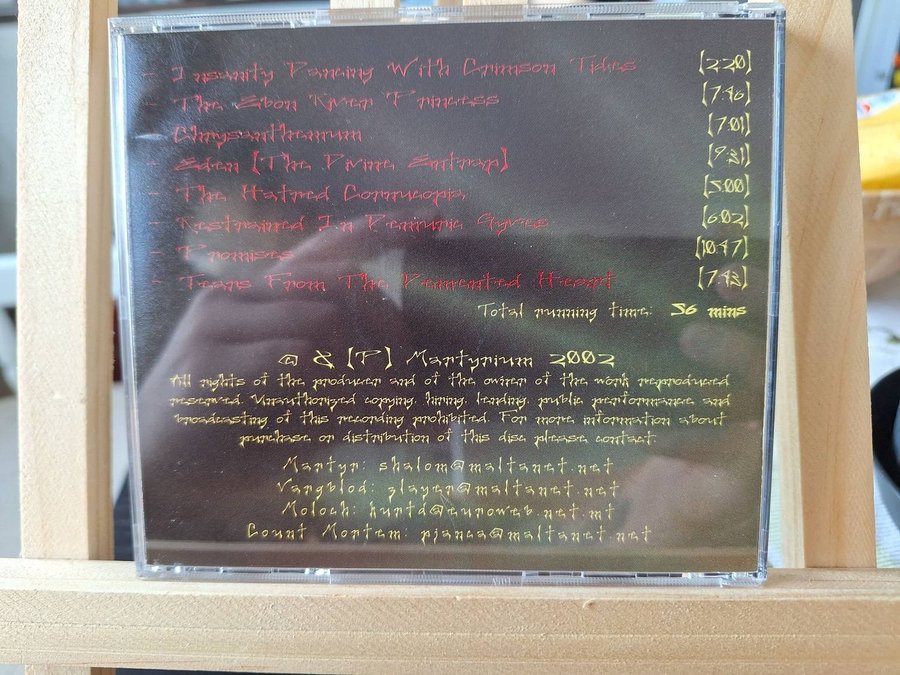 - Insanity Dancing With Crimson Tides [2:20]
- The Ebon River Princess [7:46]
- Chrysanthemum [7:01]
- Eden [The Divine Entrap] [9:31]
- The Hatred Cornucopia [5:00]
- Restrained In Demonic Gyves [6:02]
- Promises [10:47]
- Tears From The Demented Heart [7:43]
Total running time: 56 mins
© & [P] Martyrium 2002
All rights of the producer and of the owner of the work reproduced
reserved. Unauthorized copying, hiring, lending, public performance and
broadcasting of this recording prohibited. For more information about
purchase or distribution of this disc please contact:
Martyr: shalom@maltanet.net
Vargblod: slayer@maltanet.net
Moloch: kurtd@euroweb.net.mt
Count Mortem: pjanca@maltanet.net